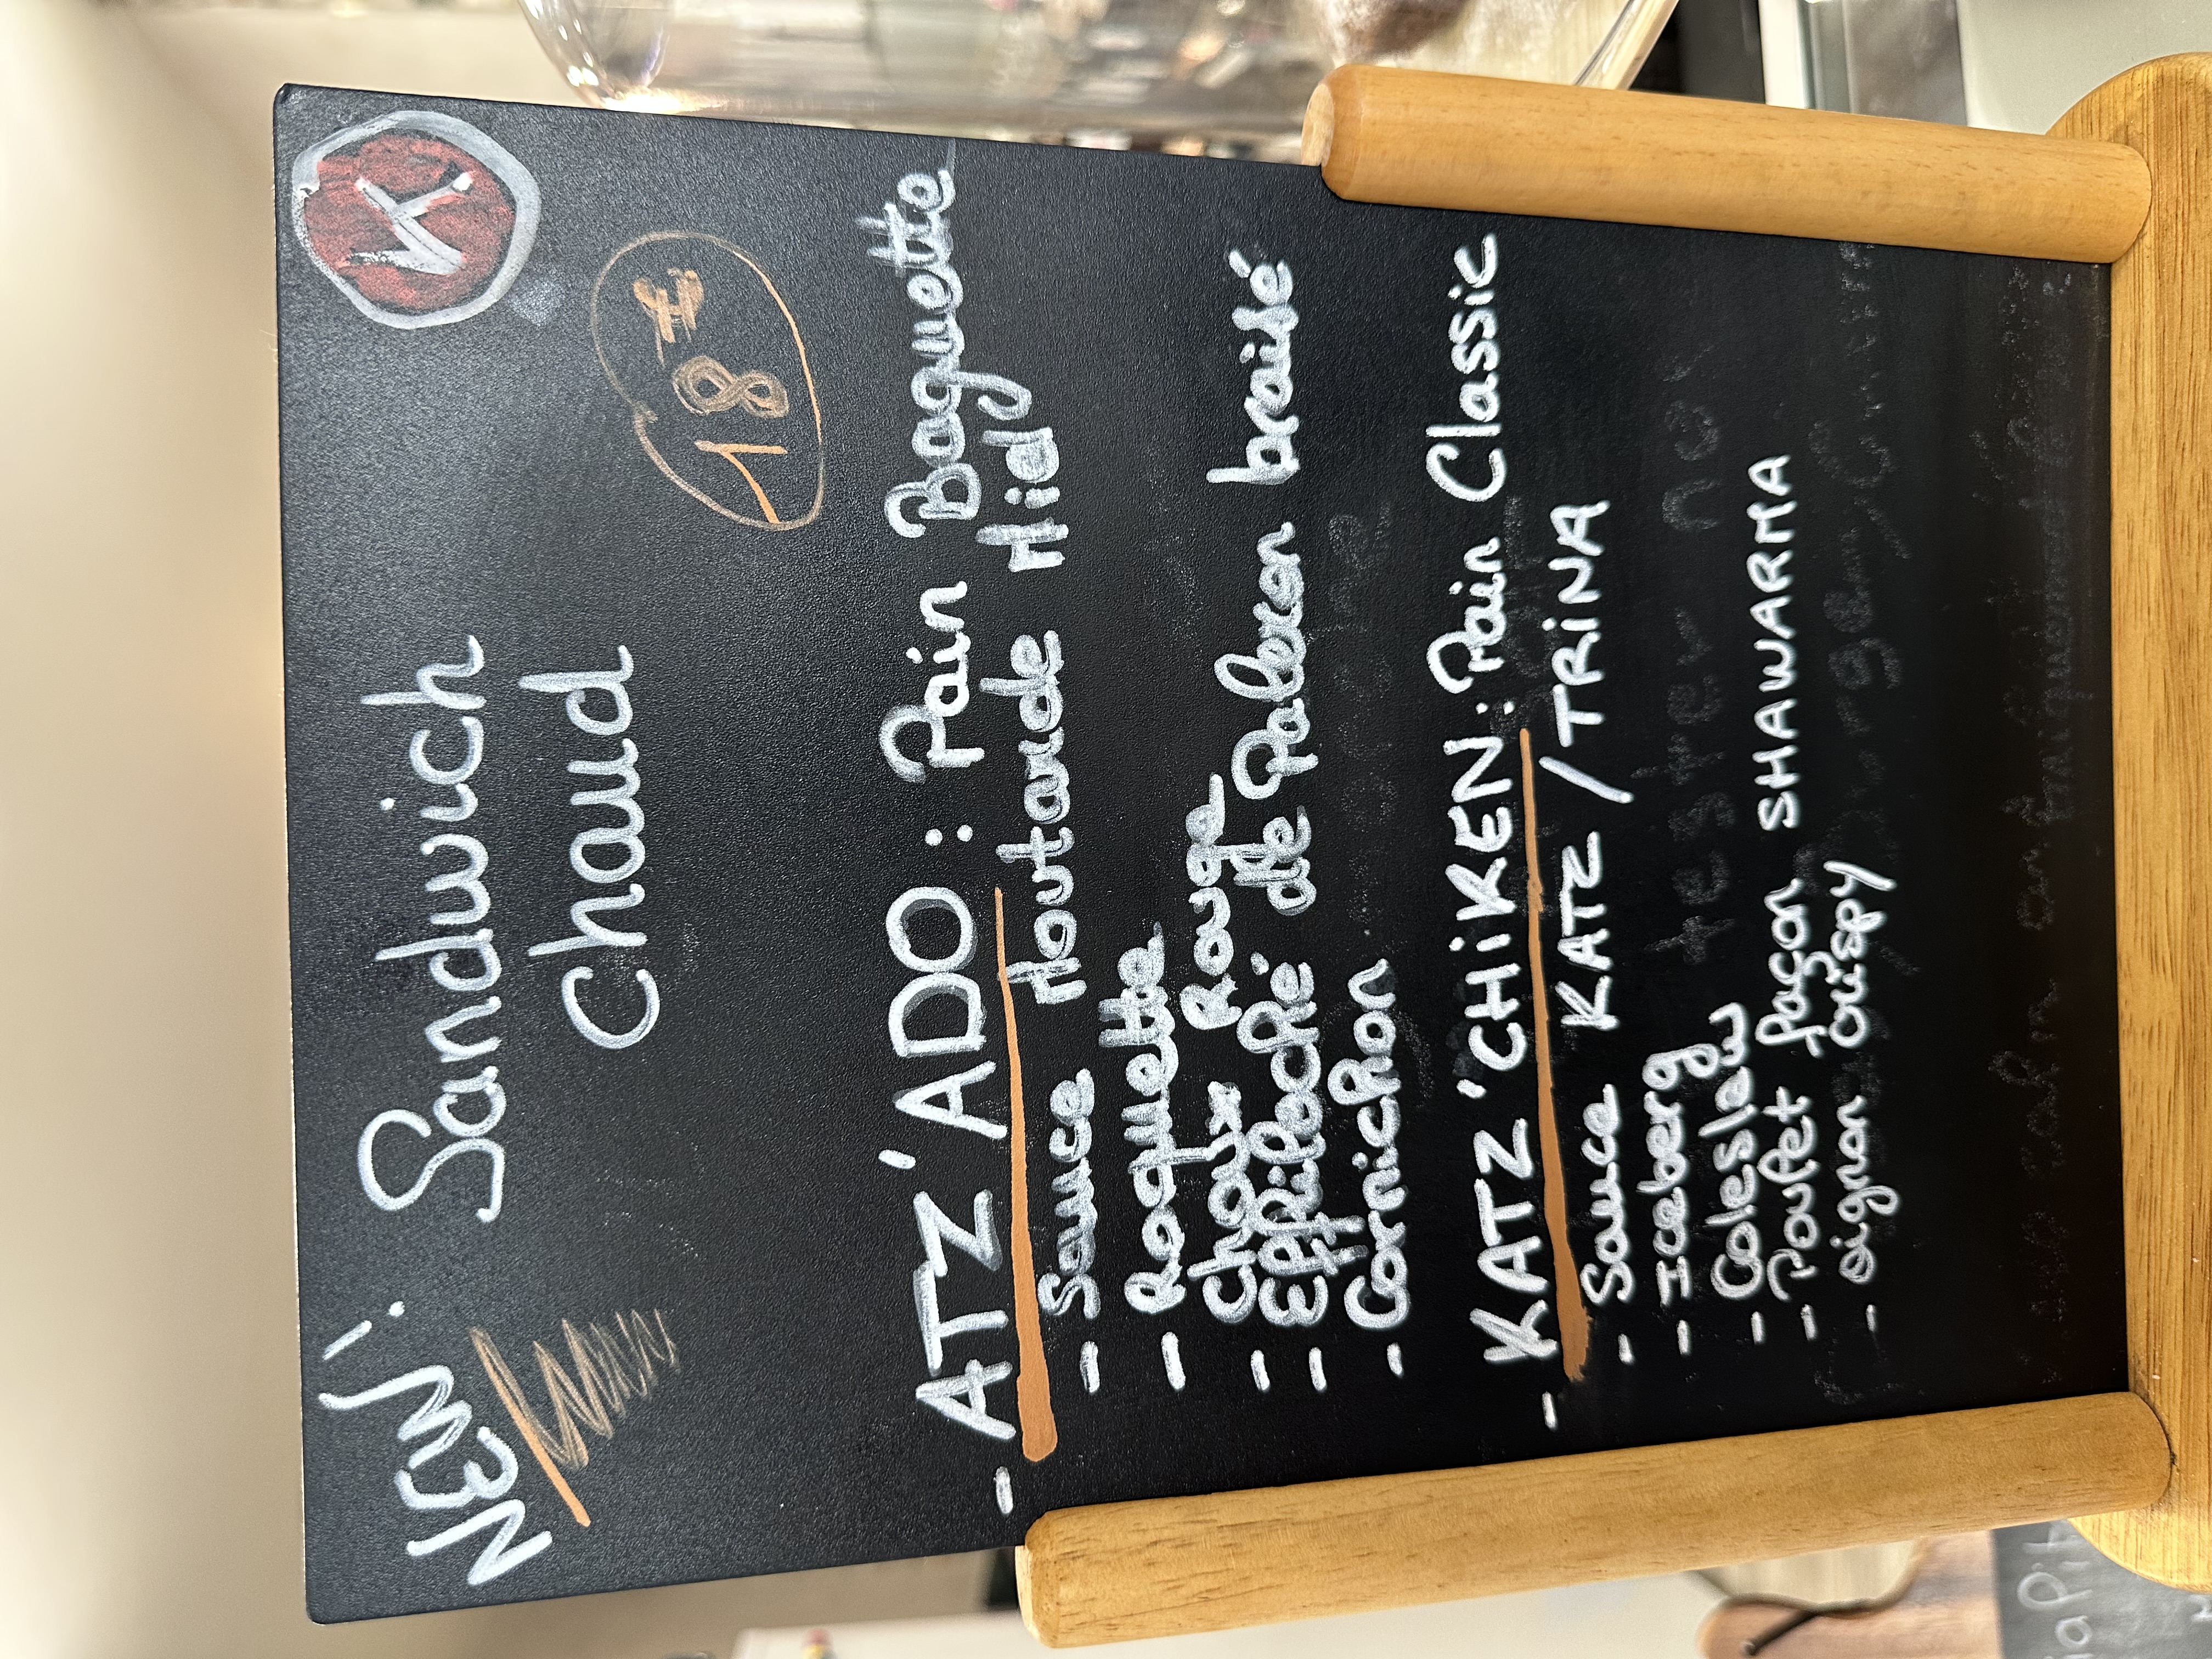 NEW!
Sandwich
Chaud
K
18€
- ATZ'ADO : Pain Baguette
- Sauce Moutarde Miel
- Roquette
- Choux Rouge
- Effiloché de Paleron braisé
- Cornichon
- KATZ'CHiKEN: Pain Classic
- Sauce KATZ / TRiNA
- Iceberg
- Coleslaw
- Poulet façon SHAWARMA
- oignon crispy